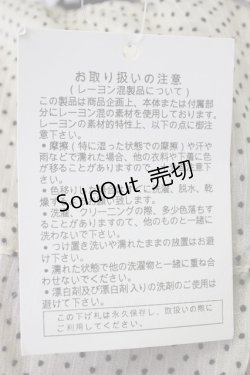 お取り扱いの注意
(レーヨン混製品について)
この製品は商品企画上、本体または付属
部分にレーヨン混の素材を使用しており
ます。レーヨンの素材的特性上、以下の点に御注
意下さい。
・摩擦(特に湿った状態での摩擦)や汗や
雨などで濡れた場合、他の衣料や下着に色
が移ることがありますので
下さい。
・色移りし
、脱水、乾
燥す
SoldOut 売切
・洗濯、クリーニングの際、多少色落ちす
ることがありますので、他のものと一緒に洗
わないで下さい。
・つけ置き洗いや濡れたままの放置はお避け
下さい。
・濡れた状態で他の洗濯物と一緒に重ね合
わせないで下さい。
・漂白剤及び漂白剤入りの洗剤のご使用は
避けて下さい。
この下げ札は永久保存し、取扱いの際に
ご利用して下さい。